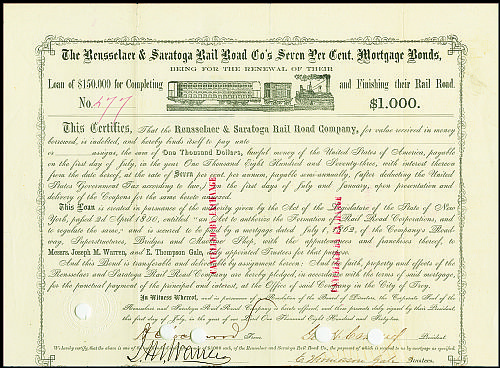 The Rensselaer & Saratoga Rail Road Co's Seven Per Cent. Mortgage Bonds,
BEING FOR THE RENEWAL OF THEIR
Loan of $150.000 for Completing and Finishing their Rail Road.
No. 577 $1.000.
This Certifies, That the Rensselaer & Saratoga Rail Road Company, for value received in money
borrowed, is indebted, and hereby binds itself to pay unto
or assigns, the sum of One Thousand Dollars, lawful money of the United States of America, payable
on the first day of July, in the year One Thousand Eight Hundred and Seventy-three, with interest thereon
from the date hereof, at the rate of Seven per cent. per annum, payable semi-annually, (after deducting the United
States Government Tax according to law,) on the first days of July and January, upon presentation and
delivery of the Coupons for the same hereto annexed.
This Loan is created in pursuance of the authority given by the Act of the Legislature of the State of New
York, passed 2d April 1850, entitled "an Act to authorize the Formation of Rail Road Corporations, and
to regulate the same," and is secured to be paid by a mortgage dated July 1, 1862, of the Company's Road-
way, Superstructures, Bridges and Machine Shop, with the appurtenances and franchises thereof, to
Messrs. Joseph M. Warren, and E. Thompson Gale, the appointed Trustees for that purpose.
And this Bond is transferable and deliverable by assignment hereon. And the faith, property and effects of the
Rensselaer and Saratoga Rail Road Company are hereby pledged, in accordance with the terms of said mortgage,
for the punctual payment of the principal and interest, at the Office of said Company in the City of Troy.
In Witness Whereof, and in pursuance of a Resolution of the Board of Directors, the Corporate Seal of the
Rensselaer and Saratoga Rail Road Company is hereto affixed, and these presents duly signed by their President,
this first day of July, in the year of our Lord One Thousand Eight Hundred and Sixty
President.
We hereby certify, that the above is one of
J. M. Warren E. Thompson Gale Trustees.